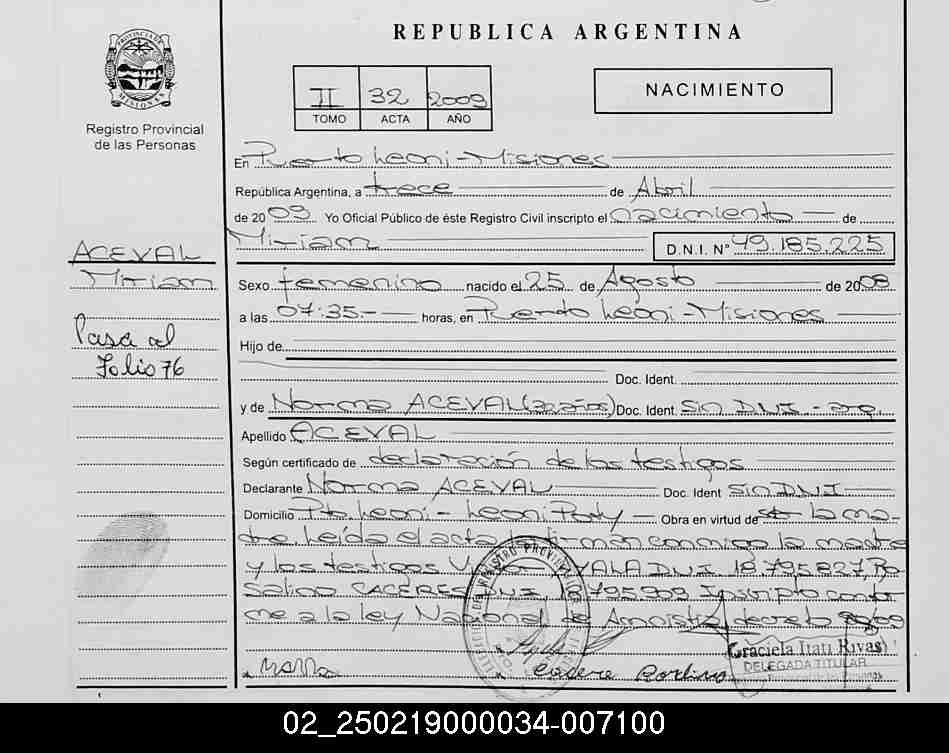 REPUBLICA ARGENTINA
PROVINCIA DE MISIONES
Registro Provincial
de las Personas
II 32 2009
TOMO ACTA AÑO
NACIMIENTO
En Puerto Leoni - Misiones
República Argentina, a trece de Abril
de 2009 Yo Oficial Público de éste Registro Civil inscripto el nacimiento de
Miriam D.N.I. N° 49.185.225
ACEVAL
Miriam
Pasa al
Folio 76
Sexo femenino nacido el 25 de Agosto de 2008
a las 07:35 horas, en Puerto Leoni - Misiones
Hijo de
Doc. Ident.
y de Norma ACEVAL Doc. Ident. Sin DNI - arg.
Apellido ACEVAL
Según certificado de declaración de los testigos
Declarante Norma ACEVAL Doc. Ident Sin DNI
Domicilio Pto Leoni - Leoni Poty Obra en virtud de la ma-
dre. Leída el acta conmigo la madre
y los testigos DNI 18.795.827, Ro-
CACERES DNI, 18.795.909 Inscripto confor
me a la ley Nacional de Amnistia decreto
NORMA
Graciela Itatí Rivas
DELEGADA TITULAR
02_250219000034-007100